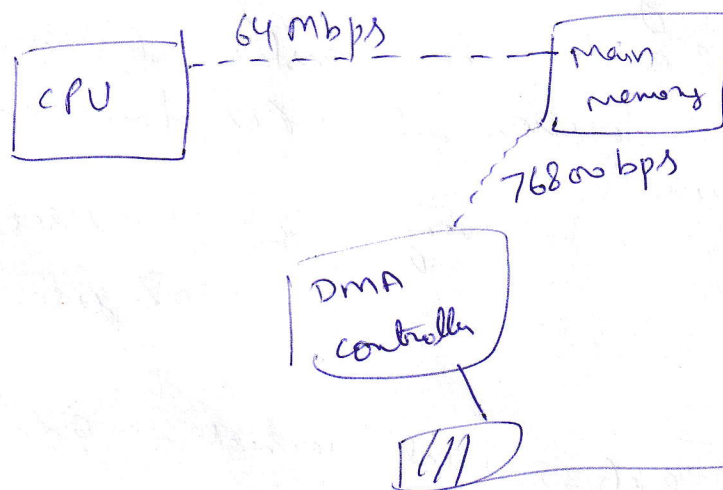 64 Mbps
CPU
Main
memory
76800 bps
DMA
controller